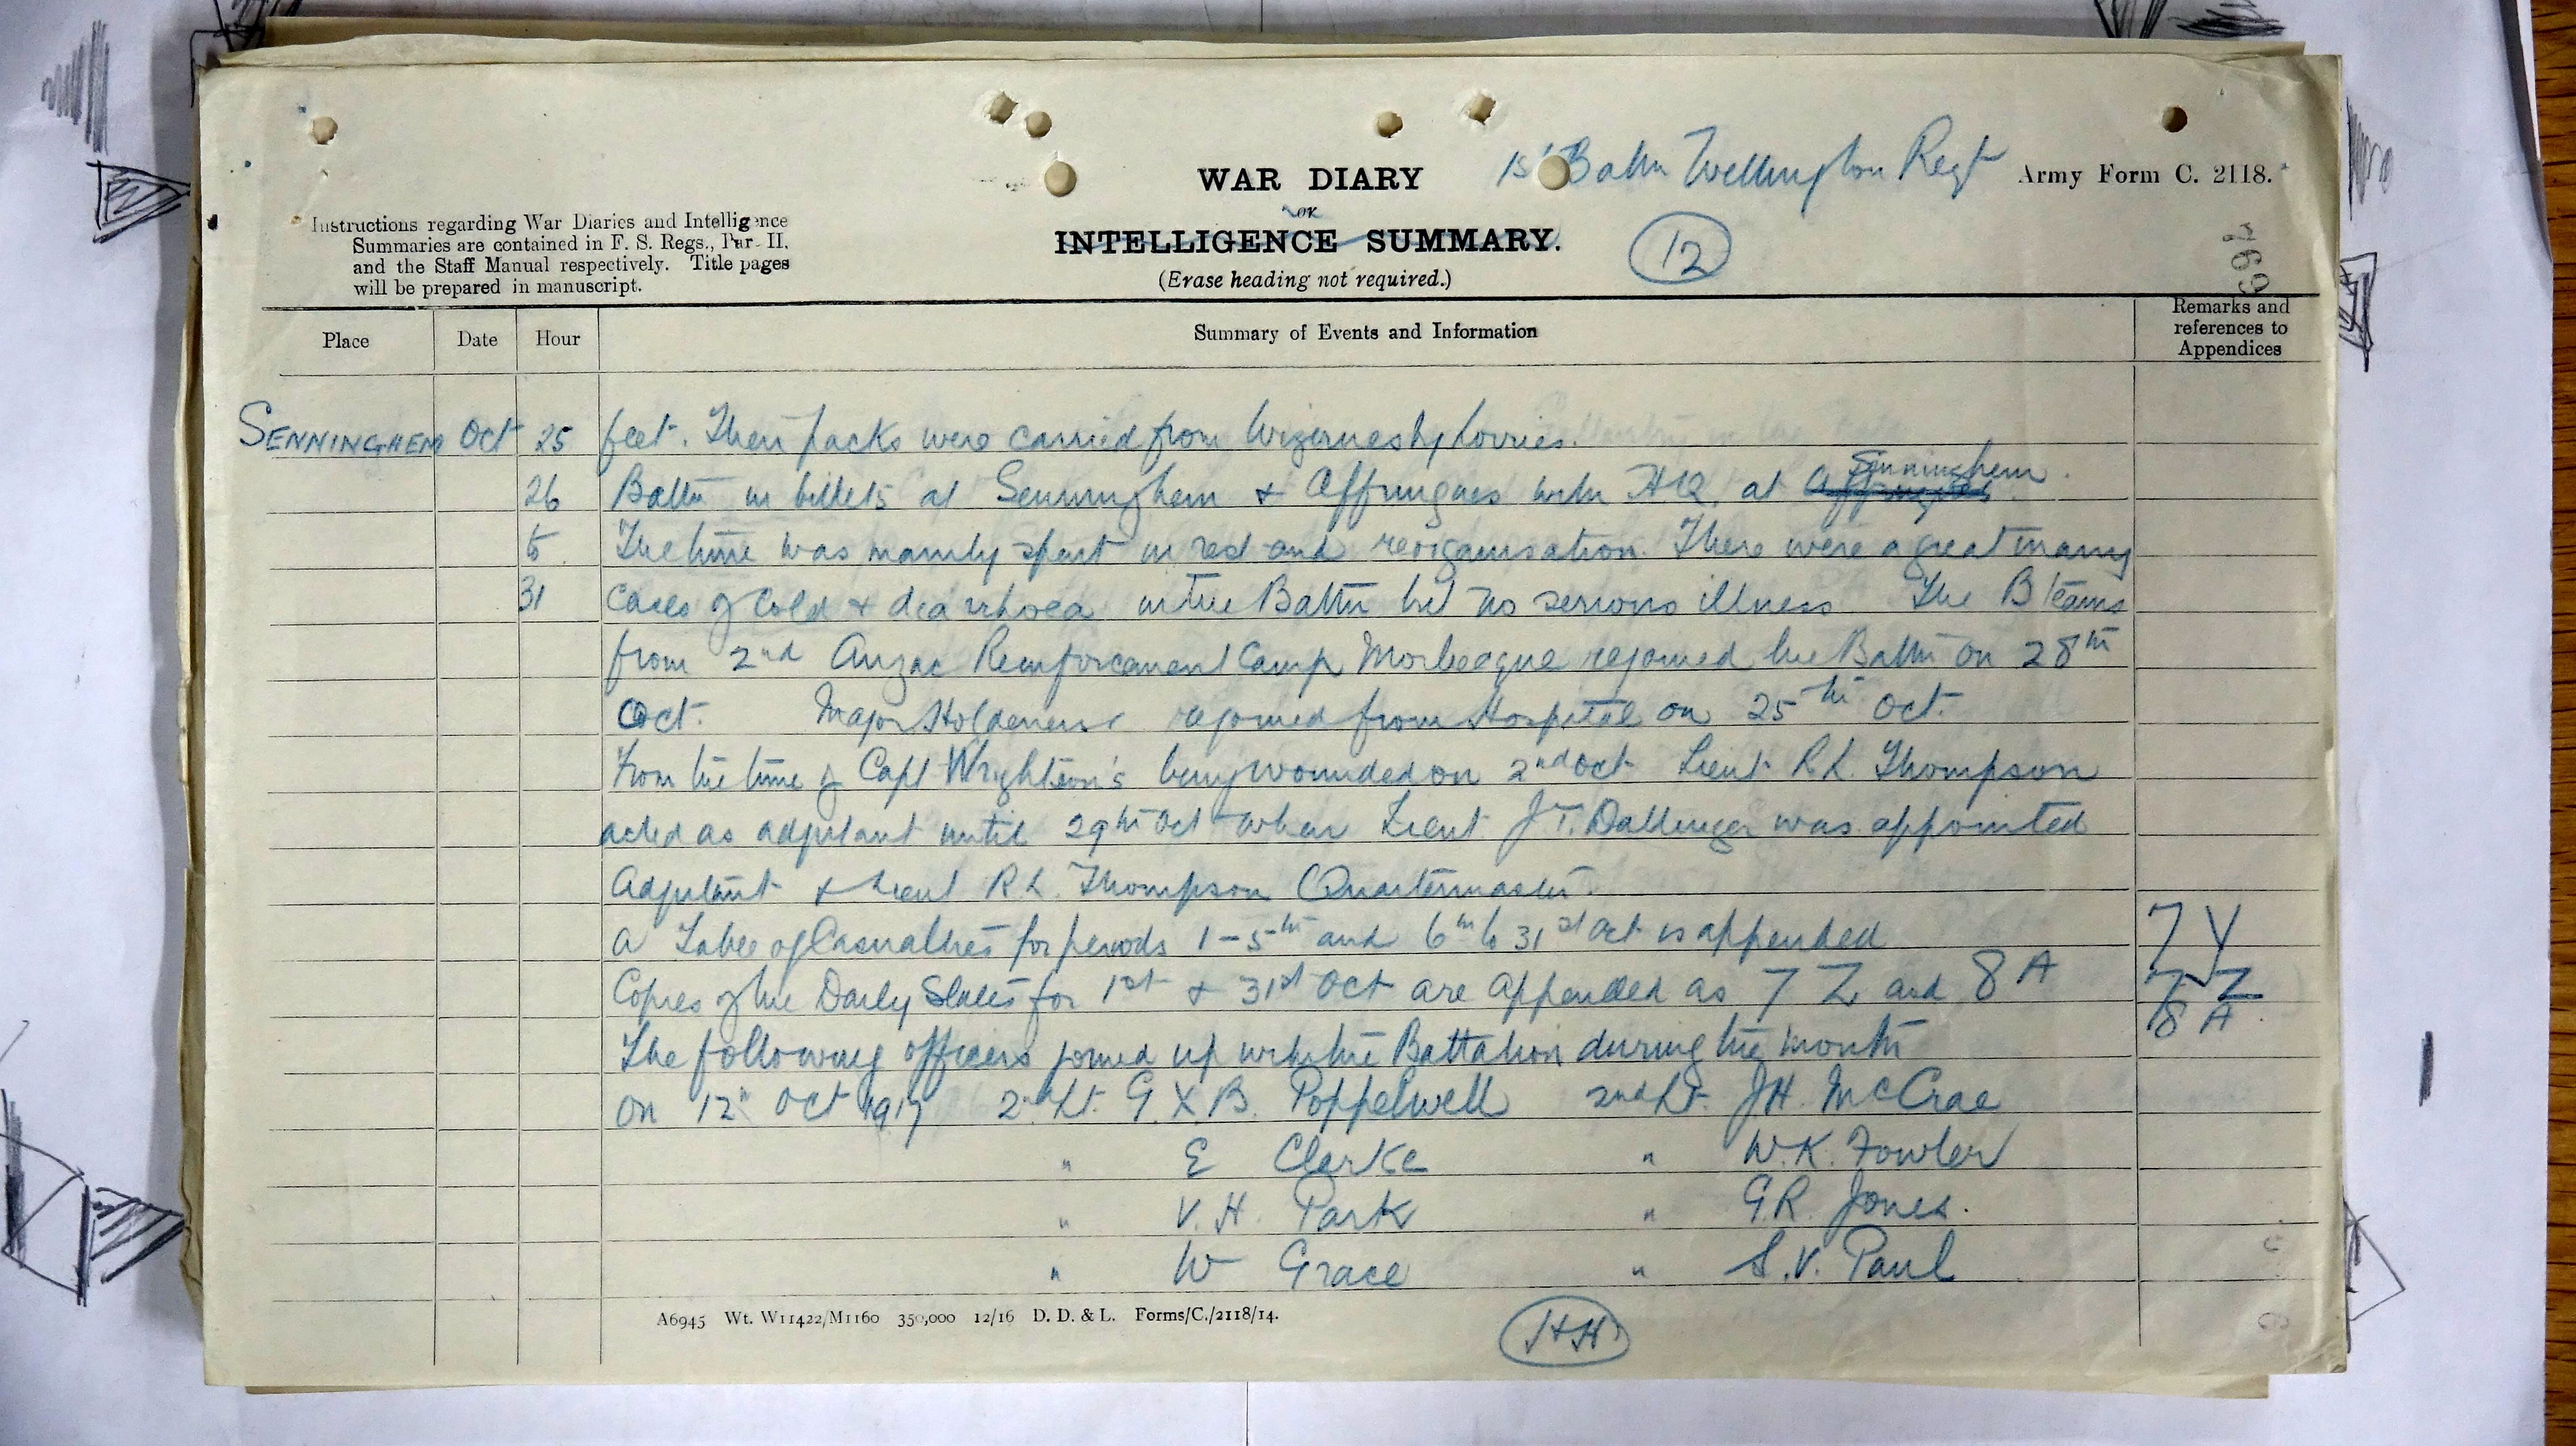 1st Battn Wellington Regt
Army Form C. 2118.
WAR DIARY
OR
INTELLIGENCE SUMMARY.
(Erase heading not required.)
12
169
Instructions regarding War Diaries and Intelligence
Summaries are contained in F. S. Regs., Part II.
and the Staff Manual respectively. Title pages
will be prepared in manuscript.
Place Date Hour Summary of Events and Information Remarks and references to Appendices
SENNINGHEM Oct 25 feet. Their packs were carried from Wizernes by lorries.
26 Battn in billets at Senninghem & Affringues with HQ. at Affringues Senninghem.
to The time was mainly spent in rest and reorganisation. There were a great many
31 cases of Cold & diarrhoea in the Battn but no serious illness. The B teams
from 2nd Anzac Reinforcement Camp Morbecque rejoined the Battn on 28th
Oct. Major Holderness rejoined from Hospital on 25th Oct.
From the time of Capt Wrightson's being wounded on 2nd Oct Lieut R.L. Thompson
acted as adjutant until 29th Oct when Lieut J.T. Dallinger was appointed
Adjutant & Lieut R.L. Thompson Quartermaster.
A Table of Casualties for periods 1-5th and 6th to 31st Oct is appended 7 Y
Copies of the Daily States for 1st & 31st Oct are appended as 7 Z and 8 A 7 Z
8 A
The following officers joined up with the Battalion during the month
on 12th Oct 1917 2nd Lt. G.X.B. Poppelwell 2nd Lt. JH. McCrae
" E Clarke " W.K. Fowler
" V.H. Park " G.R. Jones.
" W Grace " S.V. Paul
A6945 Wt. W11422/M1160 350,000 12/16 D. D. & L. Forms/C./2118/14.
HH